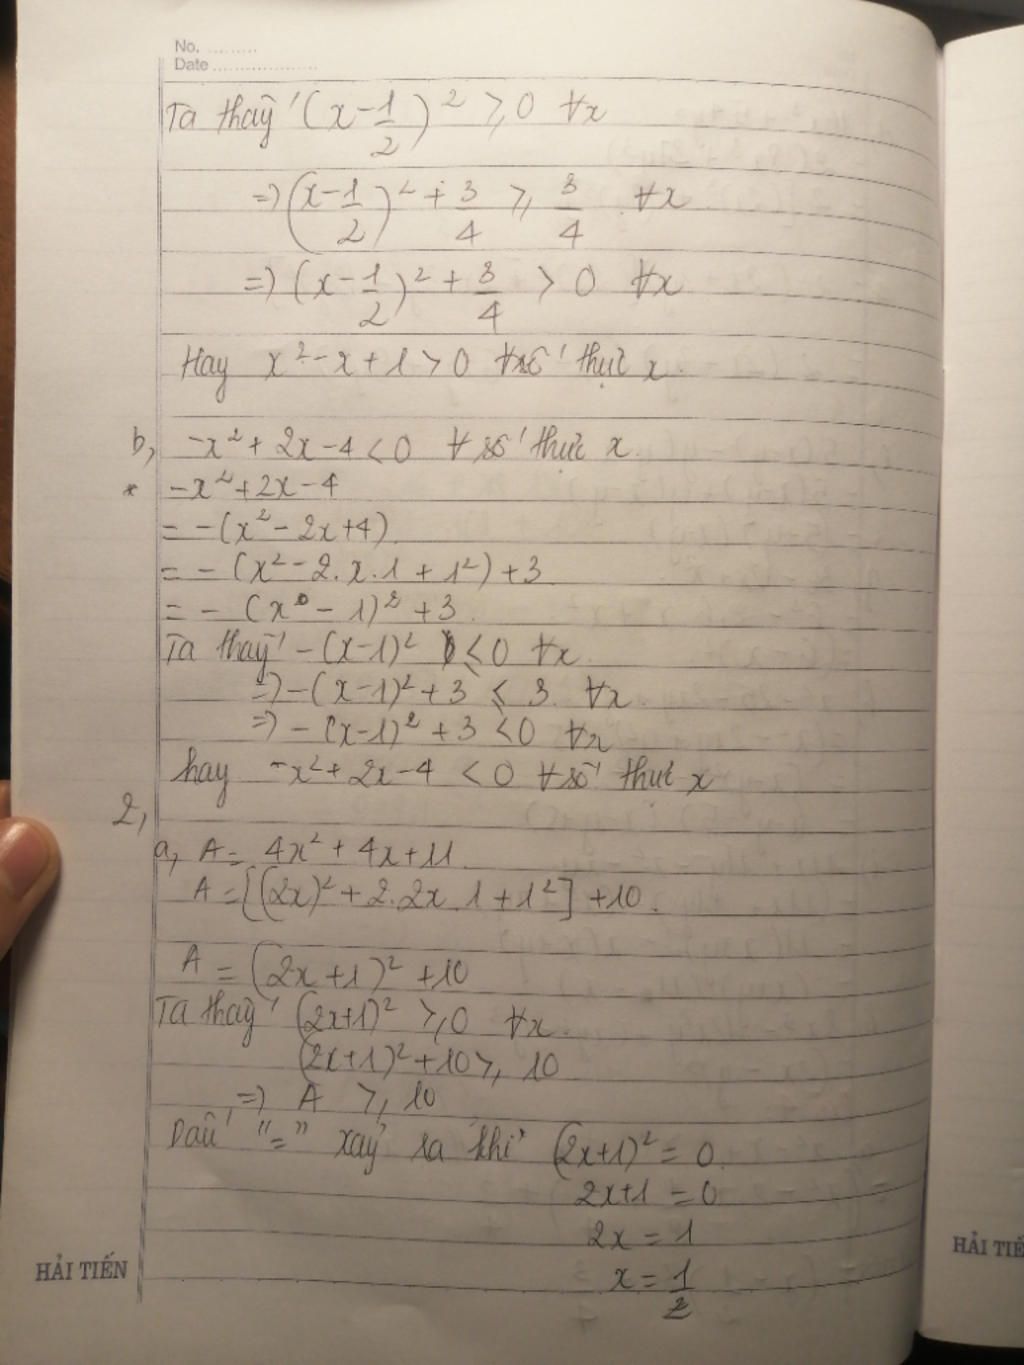 No. .........
Date ...................
Ta thấy (x-1/2)² ≥ 0 ∀x
=> (x-1/2)² + 3/4 ≥ 3/4 ∀x
=> (x-1/2)² + 3/4 > 0 ∀x
Hay x² - x + 1 > 0 ∀ số thực x.
b, -x² + 2x - 4 < 0 ∀ số thực x.
* -x² + 2x - 4
= -(x² - 2x + 4)
= - (x² - 2.x.1 + 1²) + 3
= - (x - 1)² + 3
Ta thấy - (x-1)² ≤ 0 ∀x
=> - (x-1)² + 3 ≤ 3 ∀x
=> - (x-1)² + 3 < 0 ∀x
hay -x² + 2x - 4 < 0 ∀ số thực x
2,
a, A = 4x² + 4x + 11
A = [(2x)² + 2.2x.1 + 1²] + 10.
A = (2x+1)² + 10
Ta thấy (2x+1)² ≥ 0 ∀x.
(2x+1)² + 10 ≥ 10
=> A ≥ 10
Dấu "=" xảy ra khi (2x+1)² = 0
2x+1 = 0
2x = 1
x = 1/2
HẢI TIẾN
HẢI TIẾ